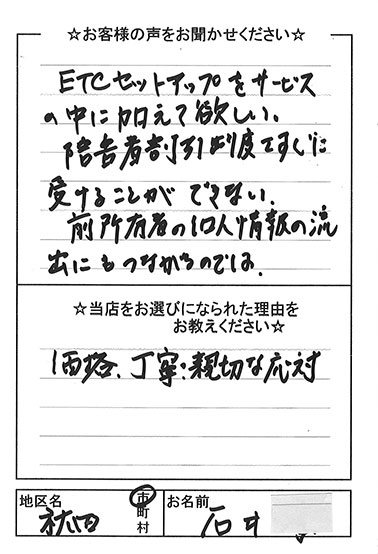 ☆お客様の声をお聞かせください☆
ETCセットアップをサービス
の中に加えて欲しい。
障害者割引制度をすぐに
受けることができない。
前所有者の個人情報の流
出にもつながるのでは。
☆当店をお選びになられた理由を
お教えください☆
価格、丁寧:親切な応対
地区名
秋田
市
町
村
お名前
石井